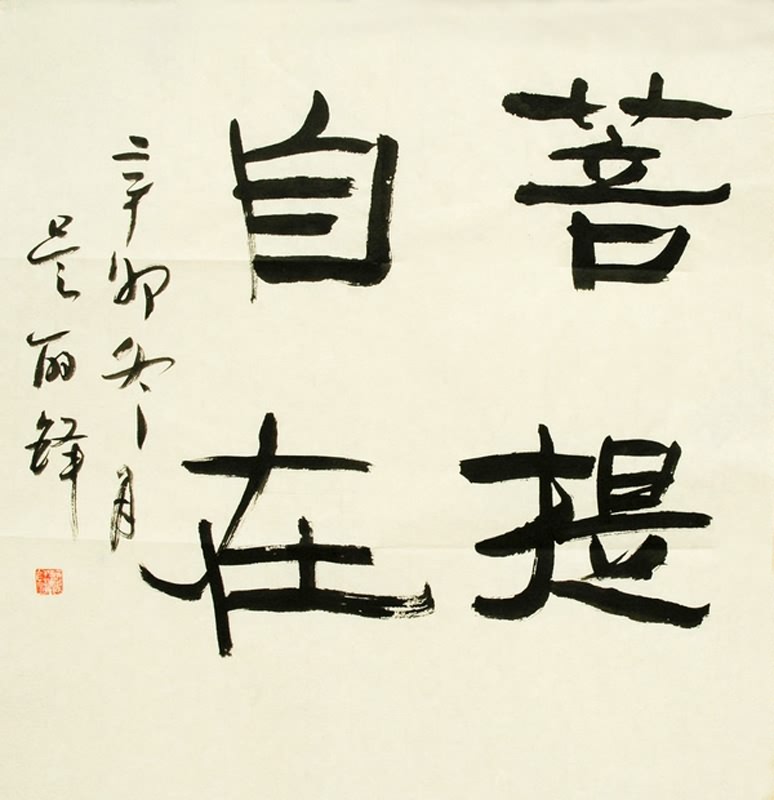 菩提
自在
辛卯冬月
吴丽锋